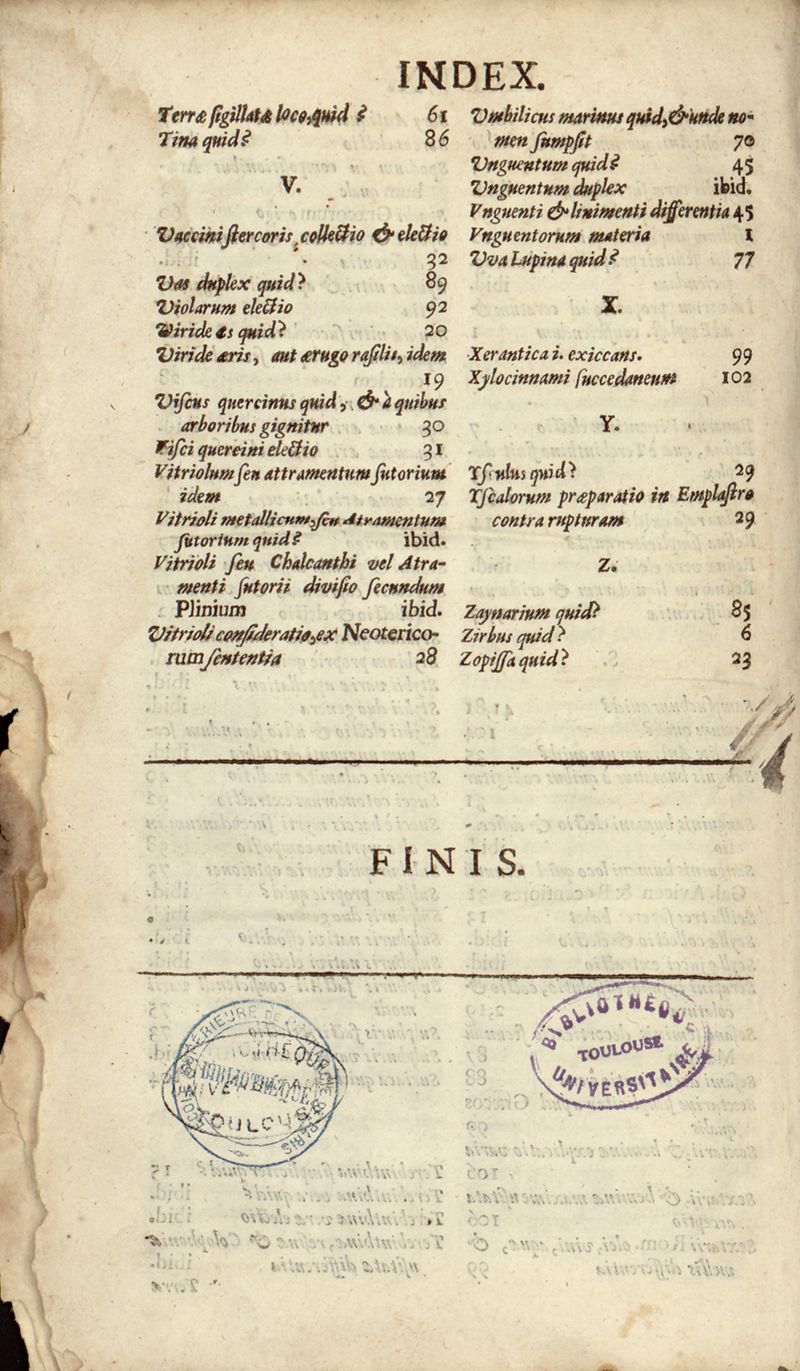 INDEX.
Terræ ſigillatæ loco, quid? 61
Tina quid? 86
V.
Vaccini ſtercoris collectio & electio
32
Vas duplex quid? 89
Violarum electio 92
Viride æs quid? 20
Viride æris, aut ærugo raſilis, idem
19
Viſcus quercinus quid, & à quibus
arboribus gignitur 30
Viſci quercini electio 31
Vitriolum ſeu attramentum ſutorium
idem 27
Vitrioli metallicum, ſeu Atramentum
ſutorium quid? ibid.
Vitrioli ſeu Chalcanthi vel Atra-
menti ſutorii diviſio ſecundum
Plinium ibid.
Vitrioli conſideratio, ex Neoterico-
rum ſententia 28
Vmbilicus marinus quid, & unde no-
men ſumpſit 70
Vnguentum quid? 45
Vnguentum duplex ibid.
Vnguenti & linimenti differentia 45
Vnguentorum materia 1
Vva Lupina quid? 77
X.
Xerantica i. exiccans. 99
Xylocinnami ſuccedaneum 102
Y.
Yſculus quid? 29
Yſcalorum præparatio in Emplaſtro
contra rupturam 29
Z.
Zaynarium quid? 85
Zirbus quid? 6
Zopiſſa quid? 23
FINIS.
BIBLIOTHÈQUE
TOULOUSE
UNIVERSITAIRE